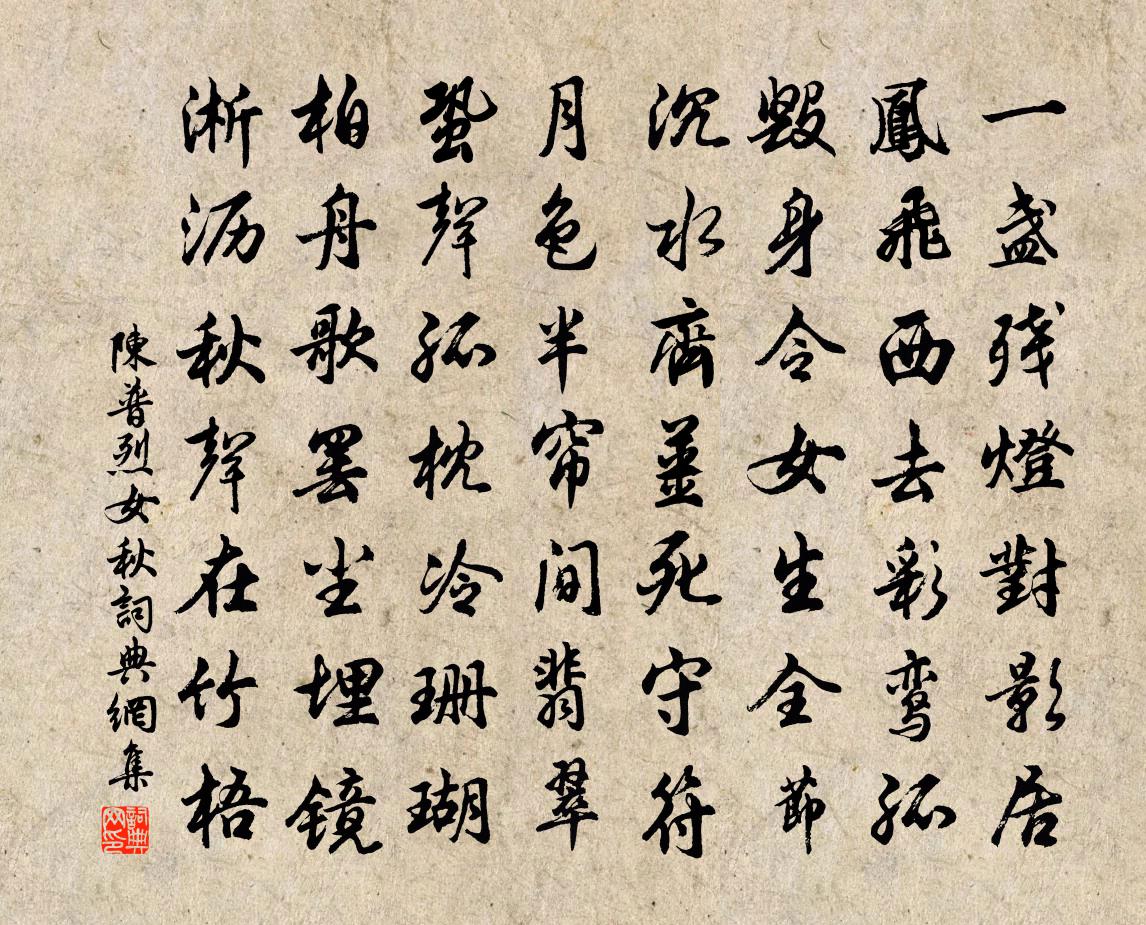 一盏残燈對影居
鳳飛西去彩鸾孤
毁身令女生全節
沉水齊薑死守符
月色半帘间翡翠
蛩聲孤枕冷珊瑚
柏舟歌罢尘埋镜
淅沥秋聲在竹梧
陳普烈女秋詞典網集
詞典網印